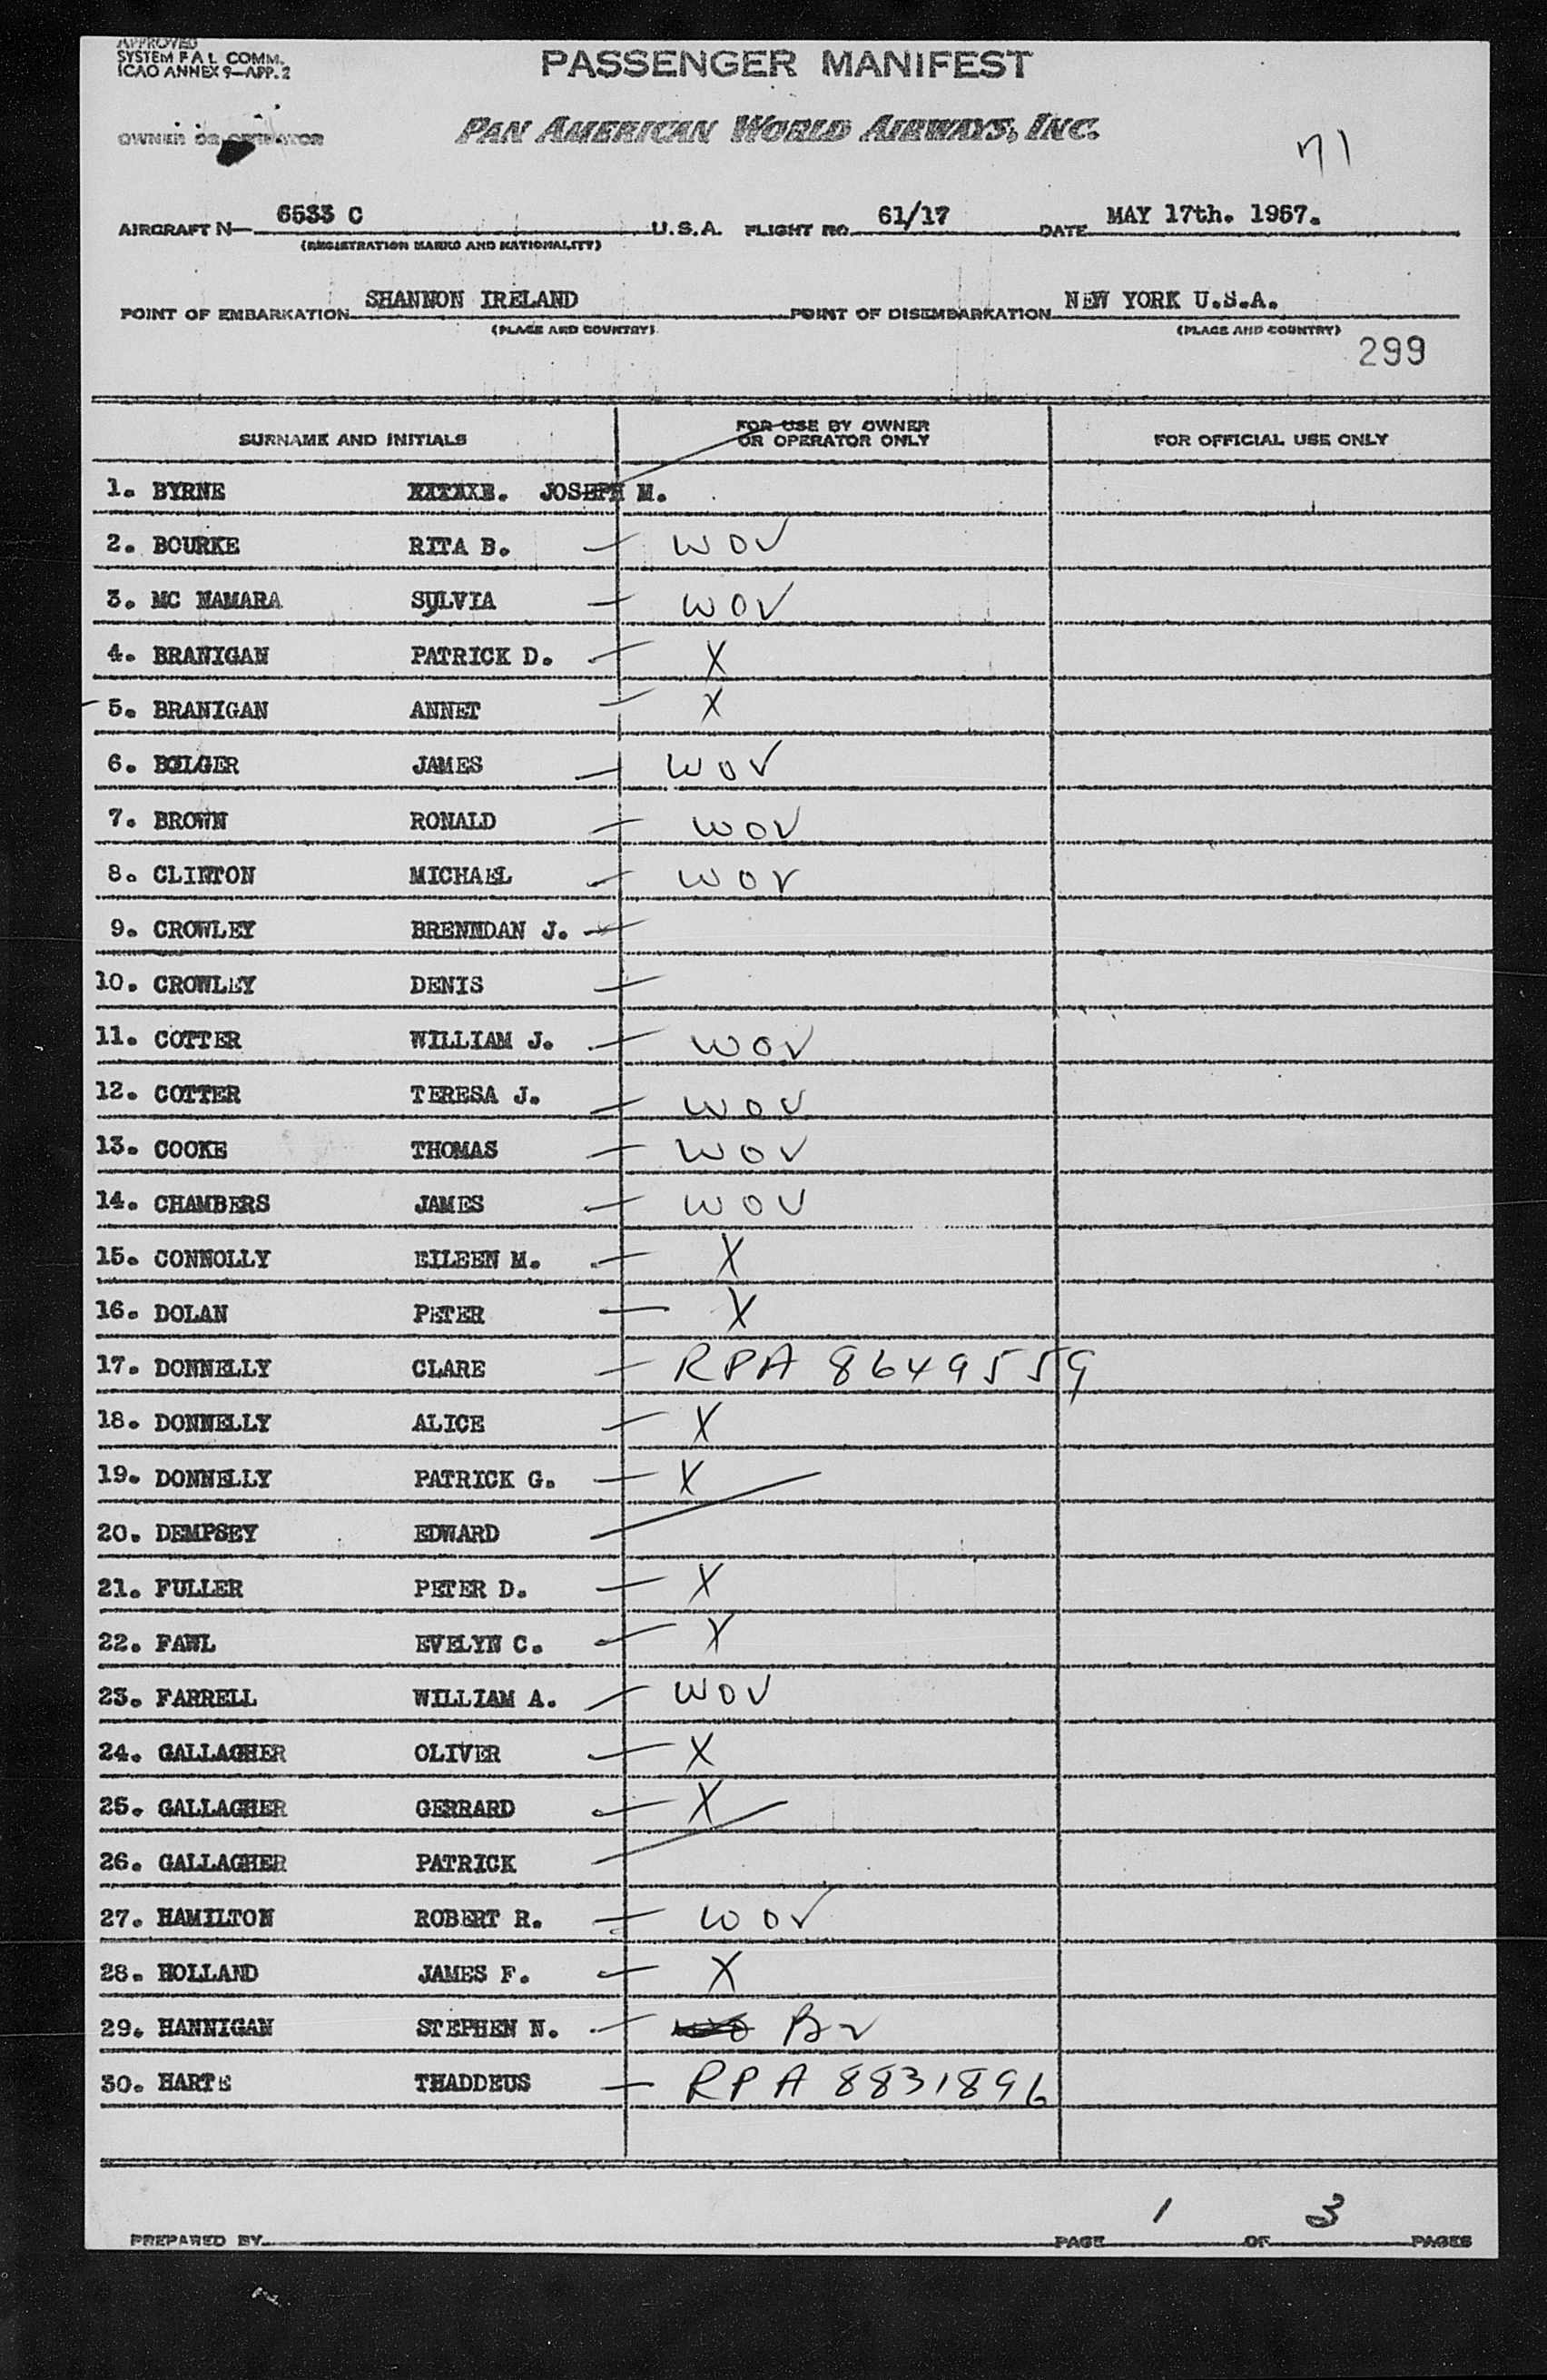 APPROVED
SYSTEM F A L COMM.
ICAO ANNEX 9—APP. 2
PASSENGER MANIFEST
OWNER OR OPERATOR
PAN AMERICAN WORLD AIRWAYS, INC.
71
AIRCRAFT N— 6533 C U.S.A. FLIGHT NO. 61/17 DATE MAY 17th. 1957.
(REGISTRATION MARKS AND NATIONALITY)
POINT OF EMBARKATION SHANNON IRELAND POINT OF DISEMBARKATION NEW YORK U.S.A.
(PLACE AND COUNTRY) (PLACE AND COUNTRY)
299
SURNAME AND INITIALS FOR USE BY OWNER OR OPERATOR ONLY FOR OFFICIAL USE ONLY
1. BYRNE JOSEPH M.
2. BOURKE RITA B. — WOV
3. MC NAMARA SYLVIA — WOV
4. BRANIGAN PATRICK D. — X
5. BRANIGAN ANNET — X
6. BOLGER JAMES — WOV
7. BROWN RONALD — WOV
8. CLINTON MICHAEL — WOV
9. CROWLEY BRENNDAN J. —
10. CROWLEY DENIS —
11. COTTER WILLIAM J. — WOV
12. COTTER TERESA J. — WOV
13. COOKE THOMAS — WOV
14. CHAMBERS JAMES — WOV
15. CONNOLLY EILEEN M. — X
16. DOLAN PETER — X
17. DONNELLY CLARE — RPA 8649559
18. DONNELLY ALICE — X
19. DONNELLY PATRICK G. — X
20. DEMPSEY EDWARD
21. FULLER PETER D. — X
22. FAWL EVELYN C. — X
23. FARRELL WILLIAM A. — WOV
24. GALLAGHER OLIVER — X
25. GALLAGHER GERRARD — X
26. GALLAGHER PATRICK
27. HAMILTON ROBERT R. — WOV
28. HOLLAND JAMES F. — X
29. HANNIGAN STEPHEN N. —
30. HARTE THADDEUS — RPA 8831896
PREPARED BY PAGE 1 OF 3 PAGES